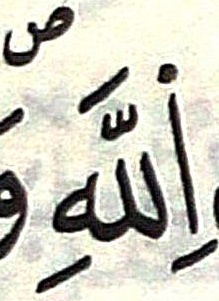 صۜ
اِللَّهِ وَ